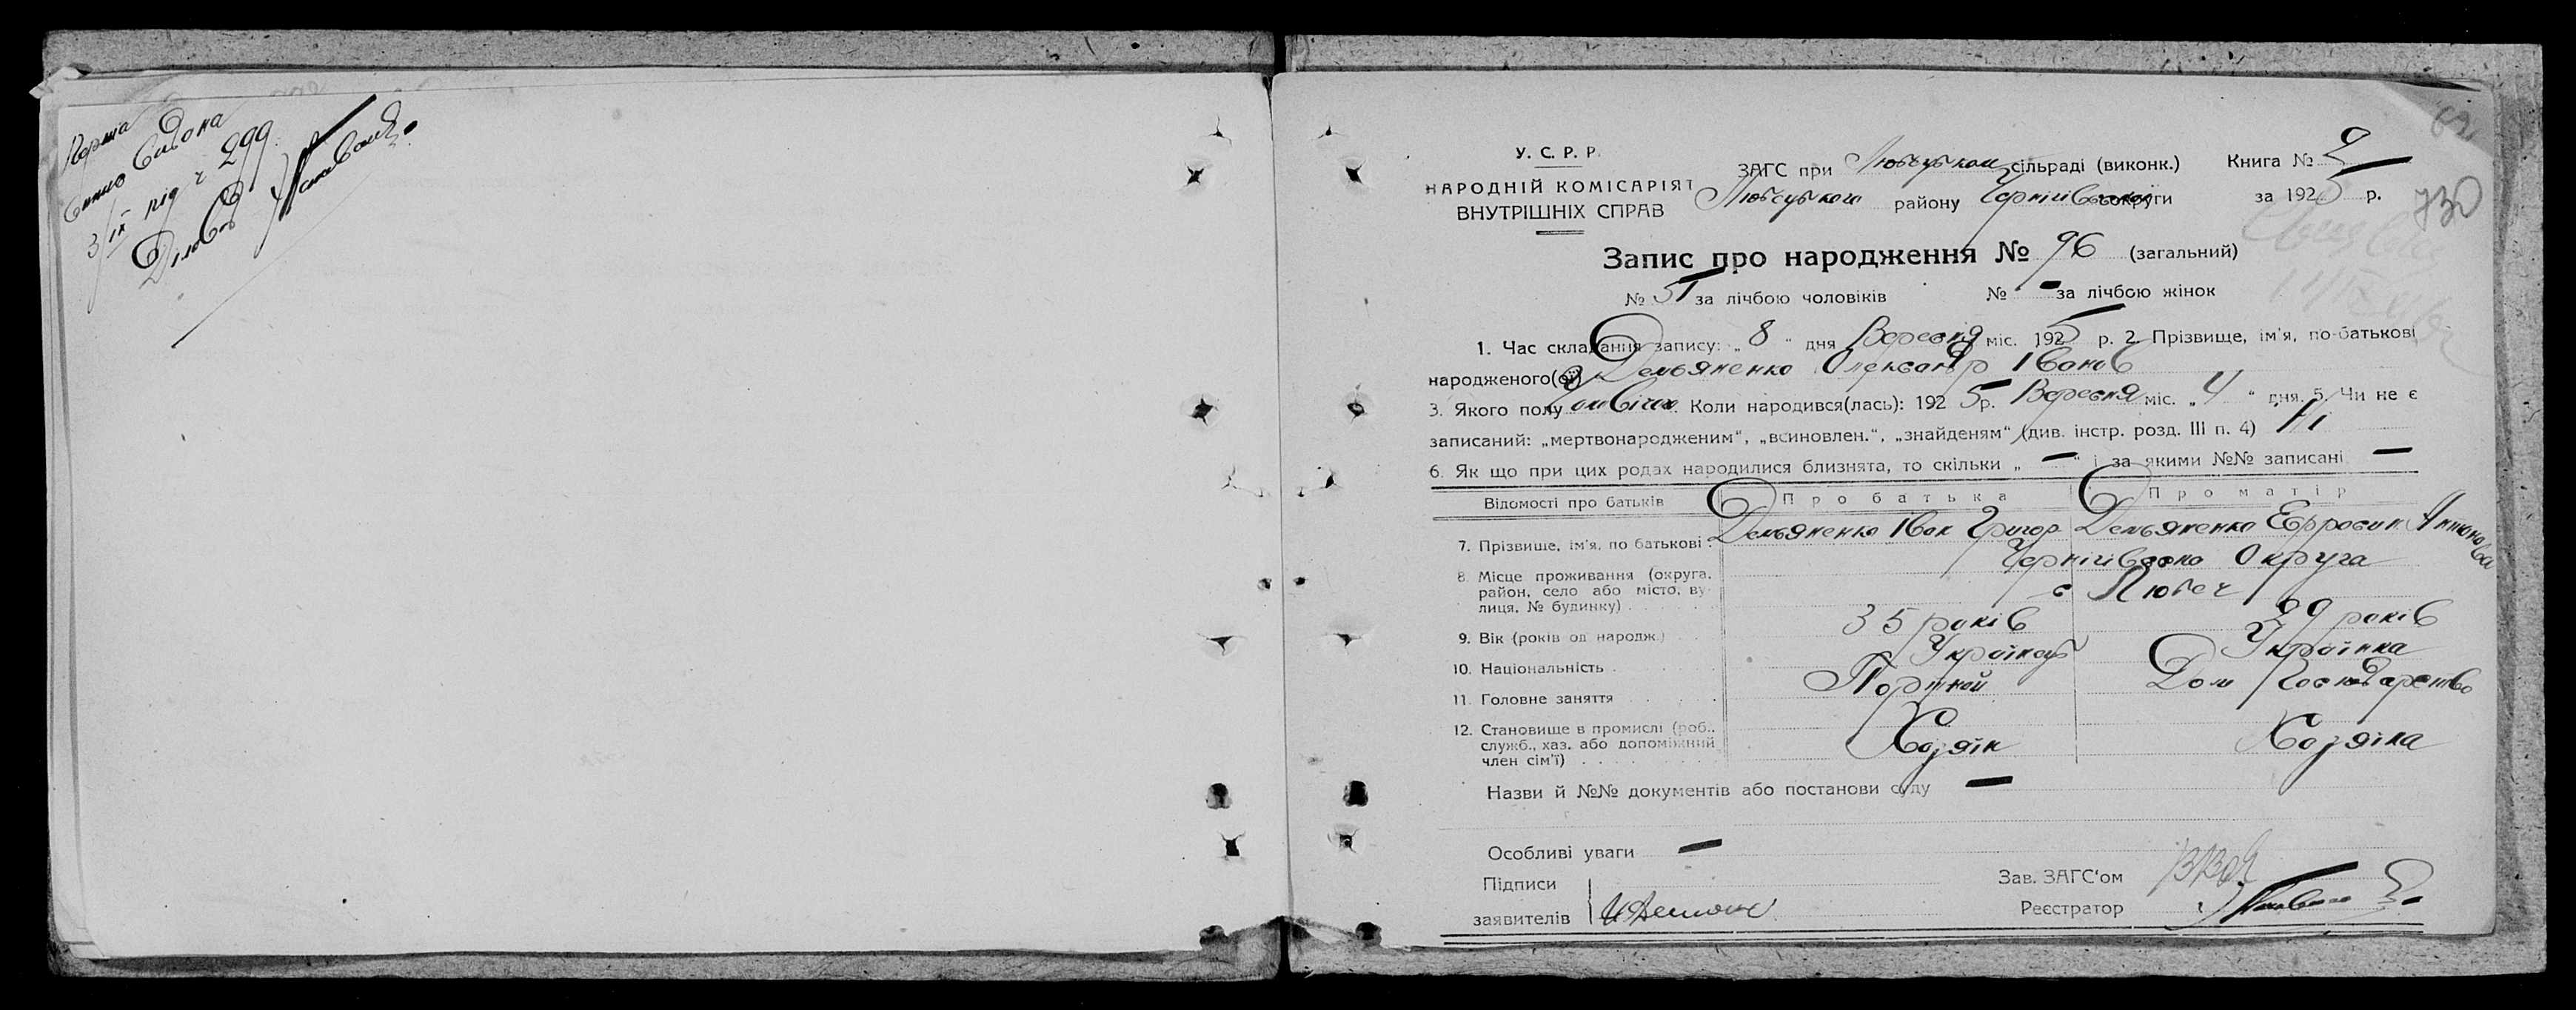 3/IX під ч 299
Діловод
62
У. С. Р. Р.
НАРОДНІЙ КОМІСАРІЯТ
ВНУТРІШНІХ СПРАВ
ЗАГС при Любецьком сільраді (виконк.) Книга № 2
Любецького району Чернігівської округи за 1925 р.
730
Запис про народження № 96 (загальний)
№ 51 за лічбою чоловіків № - за лічбою жінок
1. Час складання запису: „ 8 “ дня Вересня міс. 1925 р. 2. Прізвище, ім'я, по-батькові
народженого(ої) Демьяненко Олександр Іванов
3. Якого полу чоловічого. Коли народився(лась): 1925 р. Вересня міс. „ 4 “ дня. 5. Чи не є
записаний: „мертвонародженим“, „всиновлен.“, „знайденям“ (див. інстр. розд. III п. 4) Ні
6. Як що при цих родах народилися близнята, то скільки „ — “ і за якими №№ записані —
Відомості про батьків Про батька Про матір
7. Прізвище, ім'я, по батькові . Демьяненко Іван Григор Демьяненко Ефросин Антонова
8. Місце проживання (округа, Чернігівська Округа
район, село або місто, ву-
лиця, № будинку) . . . . . с Любеч
9. Вік (років од народж.) . . 35 років 29 років
10. Національність . . . . . Українець Українка
11. Головне заняття . . . . . Портной Дом Господарство
12. Становище в промислі (роб.,
служб., хаз. або допоміжний Хозяїн Хозяїка
член сім'ї) . . . . . . . .
Назви й №№ документів або постанови суду —
Особливі уваги —
Підписи Зав. ЗАГС'ом
заявителів Реєстратор